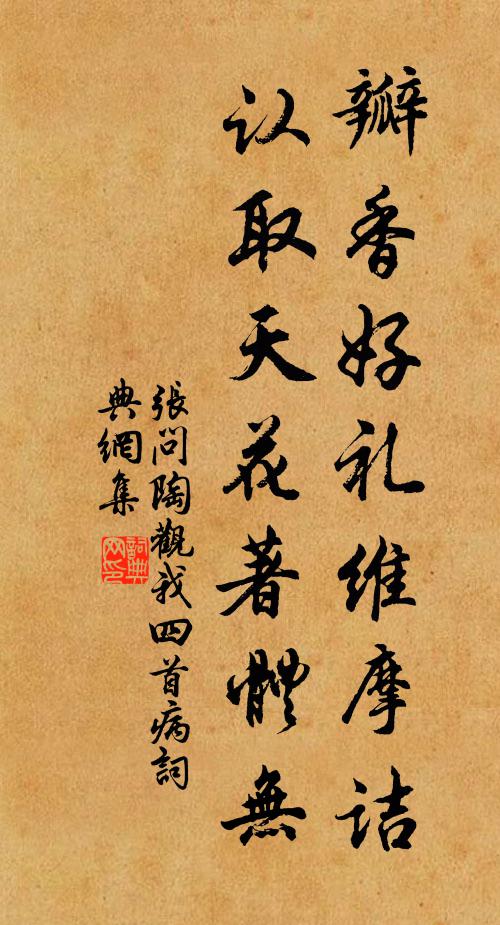 瓣香好礼维摩诘
认取天花著體無
張问陶觀我四首病詞
典網集
詞典
网印